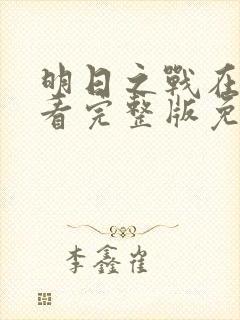 明日之戰在
看完整版免
李鑫崔